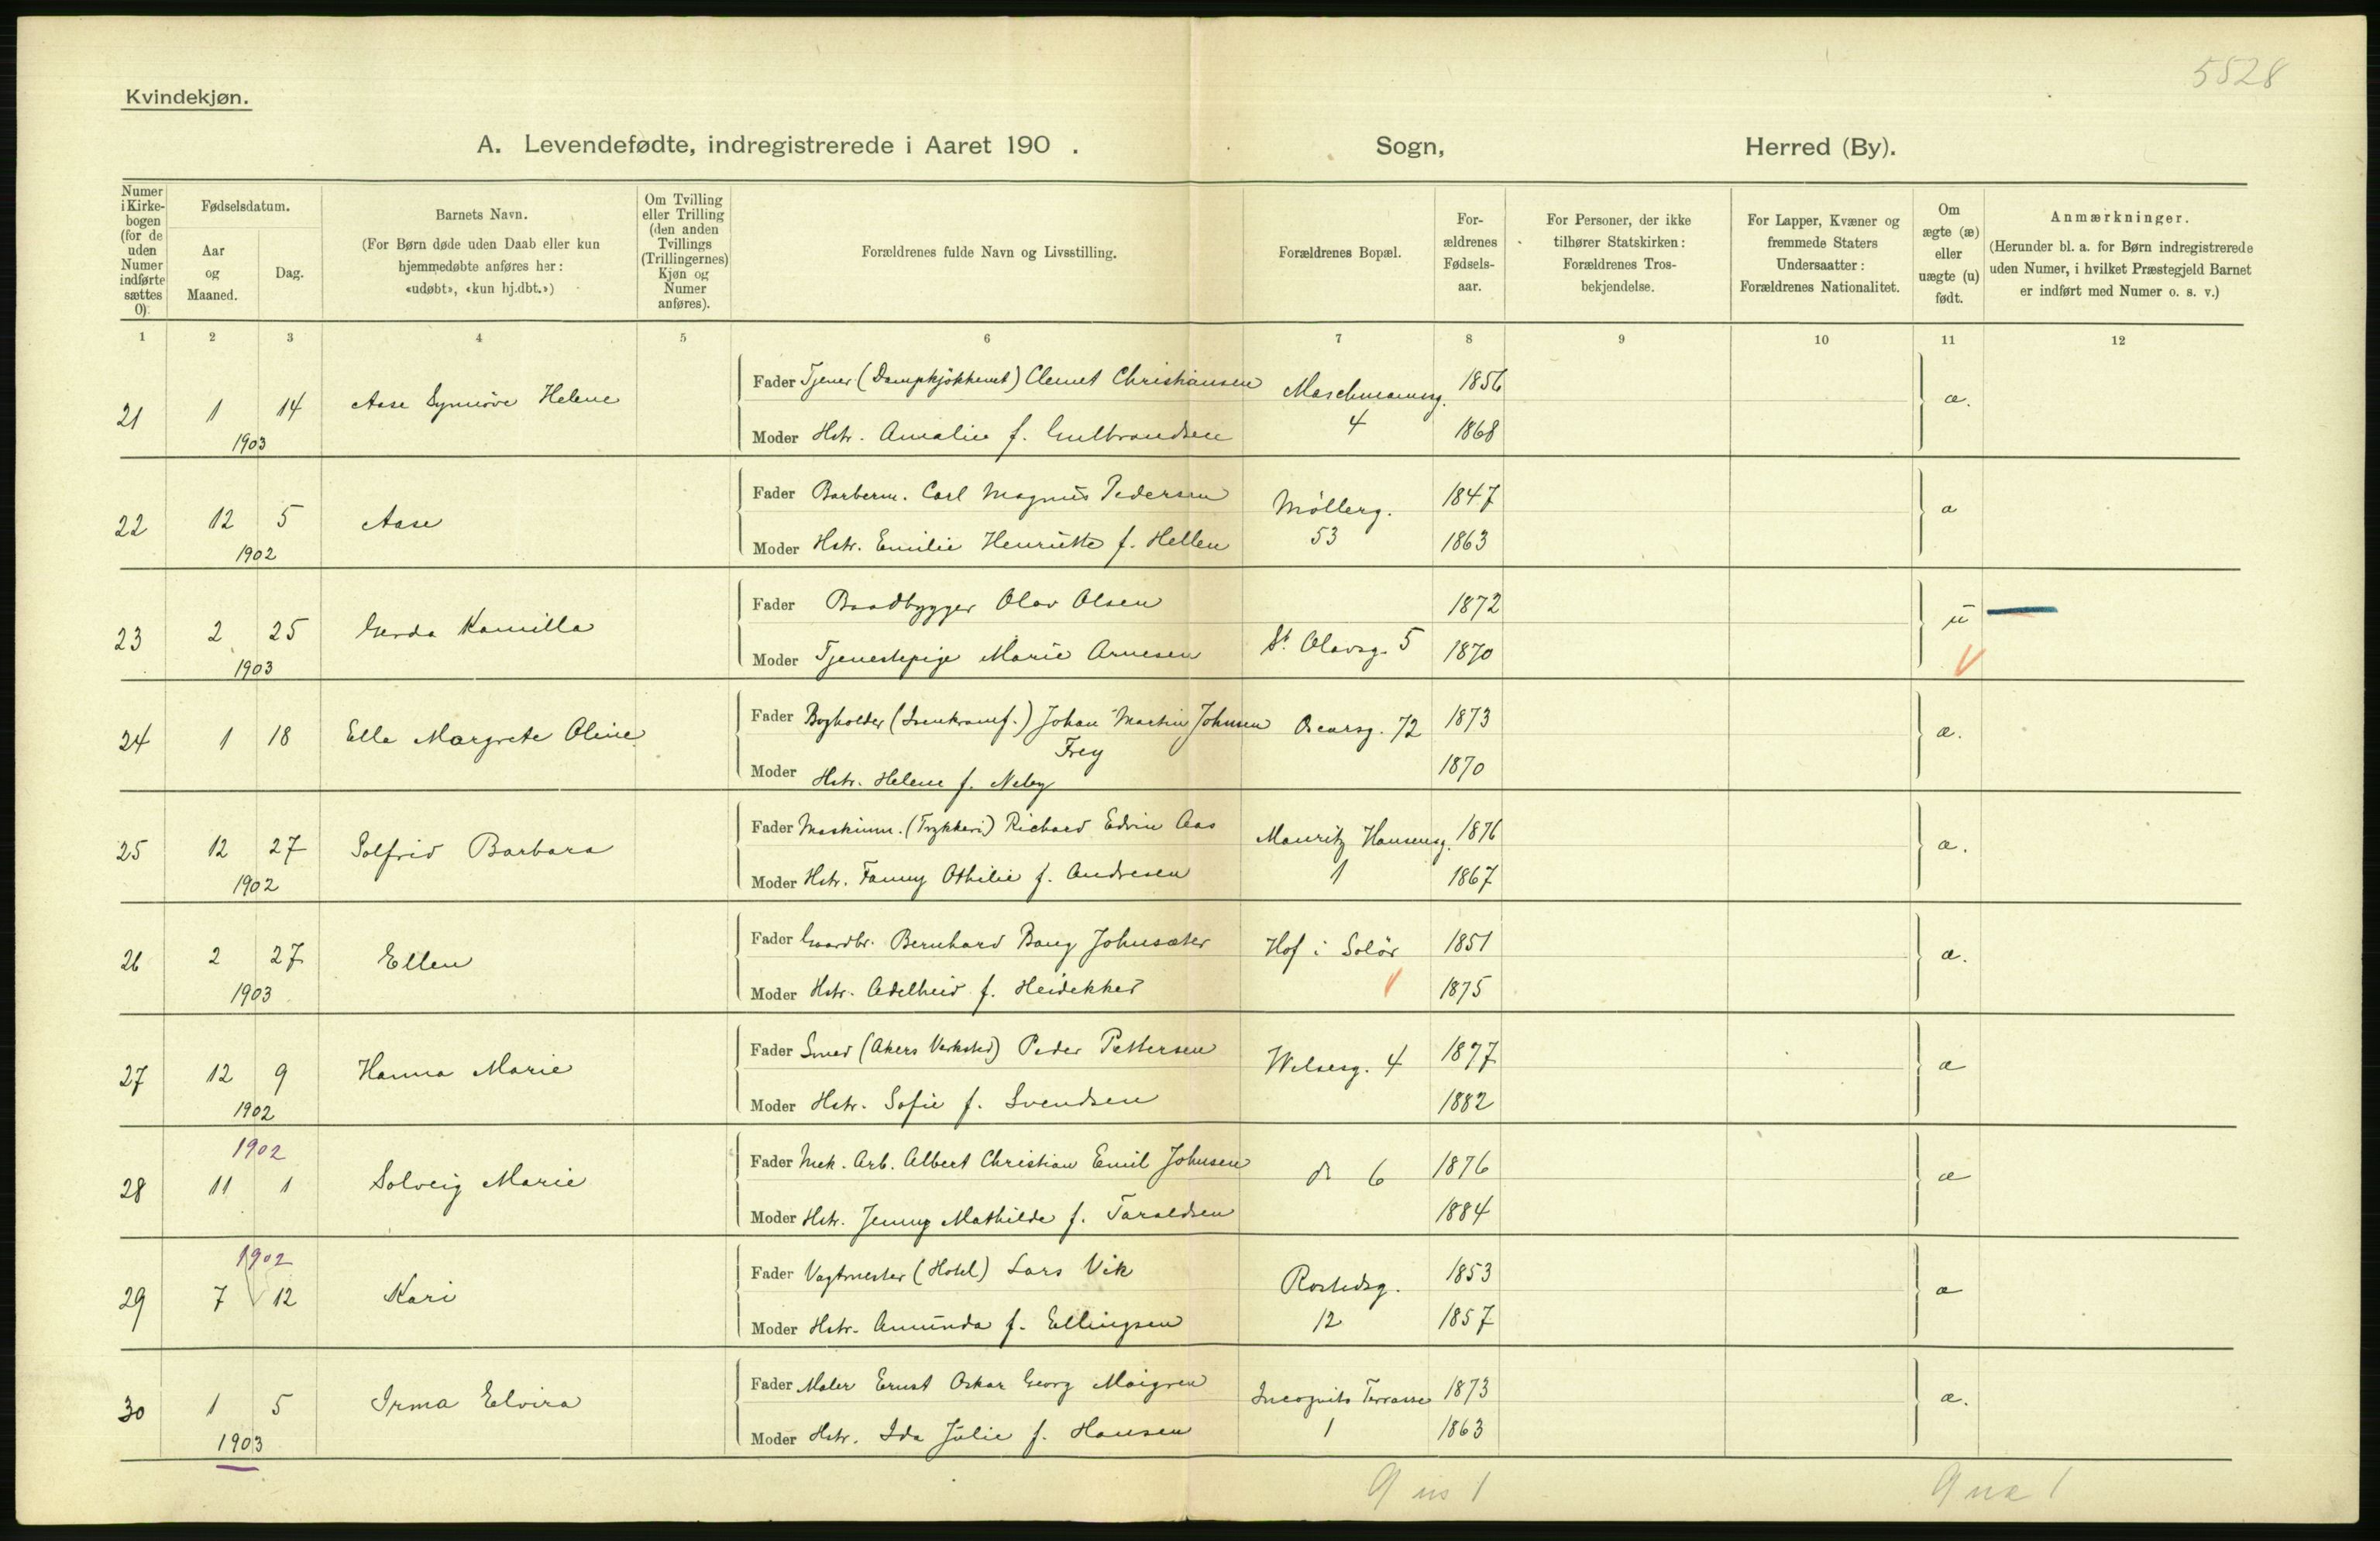 5528
Kvindekjøn.
A. Levendefødte, indregistrerede i Aaret 190 . Sogn, Herred (By).
Numer i Kirke-bogen (for de uden Numer indførte sættes 0).
Fødselsdatum.
Aar og Maaned.
Dag.
Barnets Navn.
(For Børn døde uden Daab eller kun hjemmedøbte anføres her: «udøbt», «kun hj.dbt.»)
Om Tvilling eller Trilling (den anden Tvillings (Trillingernes) Kjøn og Numer anføres).
Forældrenes fulde Navn og Livsstilling.
Forældrenes Bopæl.
For-ældrenes Fødsels-aar.
For Personer, der ikke tilhører Statskirken: Forældrenes Tros-bekjendelse.
For Lapper, Kvæner og fremmede Staters Undersaatter: Forældrenes Nationalitet.
Om ægte (æ) eller uægte (u) født.
Anmærkninger.
(Herunder bl. a. for Børn indregistrerede uden Numer, i hvilket Præstegjeld Barnet er indført med Numer o. s. v.)
1 2 3 4 5 6 7 8 9 10 11 12
Fader Tjener (Dampkjøkkenet) Clemet Christiansen 1856
21 1 14 Aase Synnøve Helene Maschmannsg. 4 æ.
1903
Moder Hstr. Amalie f. Gulbrandsen 1868
Fader Barberm. Carl Magnus Pedersen 1847
22 12 5 Aase Møllerg. 53 æ
1902
Moder Hstr. Emilie Henriette f. Hellen 1863
Fader Baadbygger Olav Olsen 1872
23 2 25 Gerda Kamilla St. Olavsg. 5 u
1903
Moder Tjenestepige Marie Arnesen 1870
Fader Bogholder (Isenkramf.) Johan Martin Johnsen Frey 1873
24 1 18 Elle Margrete Oline Oscarsg. 72 æ.
Moder Hstr. Helene f. Neby 1870
Fader Maskinm. (Trykkeri) Richard Edvin Aas 1876
25 12 27 Solfrid Barbara Mauritz Hansensg. 1 æ.
1902
Moder Hstr. Fanny Othilie f. Andresen 1867
Fader Gaardbr. Bernhard Bang Johnsæter 1851
26 2 27 Ellen Hof i Solør æ.
1903
Moder Hstr. Adelheid f. Heidekker 1875
Fader Smed (Akers Verksted) Peder Pettersen 1877
27 12 9 Hanna Marie Welseg. 4 æ
1902
Moder Hstr. Sofie f. Svendsen 1882
1902
Fader Mek. Arb. Albert Christian Emil Johnsen 1876
28 11 1 Solveig Marie do 6 æ
Moder Hstr. Jenny Mathilde f. Taraldsen 1884
1902
Fader Vagtmester (Hotel) Lars Vik 1853
29 7 12 Kari Rostedsg. 12 æ
Moder Hstr. Amunda f. Ellingsen 1857
Fader Maler Ernst Oskar Georg Moigren 1873
30 1 5 Irma Elvira Incognito Terrasse 1 æ.
1903
Moder Hstr. Ida Julie f. Hansen 1863